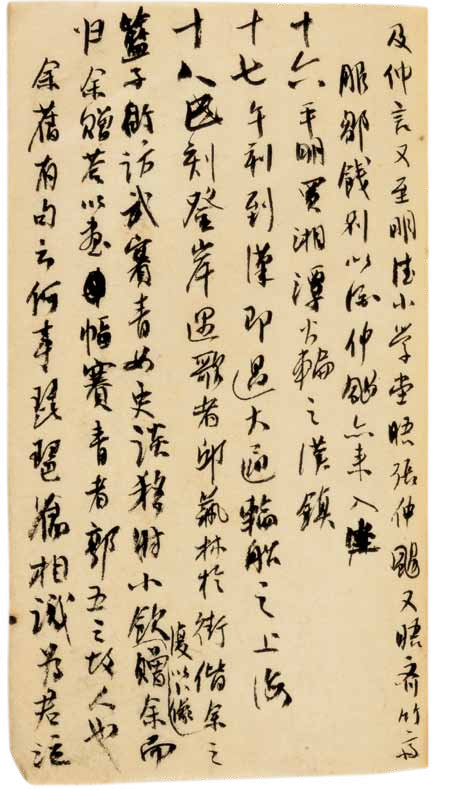 及仲言又至明德小学堂晤张仲飏又晤齐竹斋
服邹饯别以席仲飏亦来入坐
十六平明买湘潭火轮之汉镇
十七午刻到汉即过大通轮船之上海
十八巳刻登岸遇歌者邱蘋林於街偕余之
篮子衖访武赛青女史谈移时小饮赠余而复以小像
归余赠若以画幅赛青者郭五之故人也
余旧有句云何事琵琶旧相识为君泣